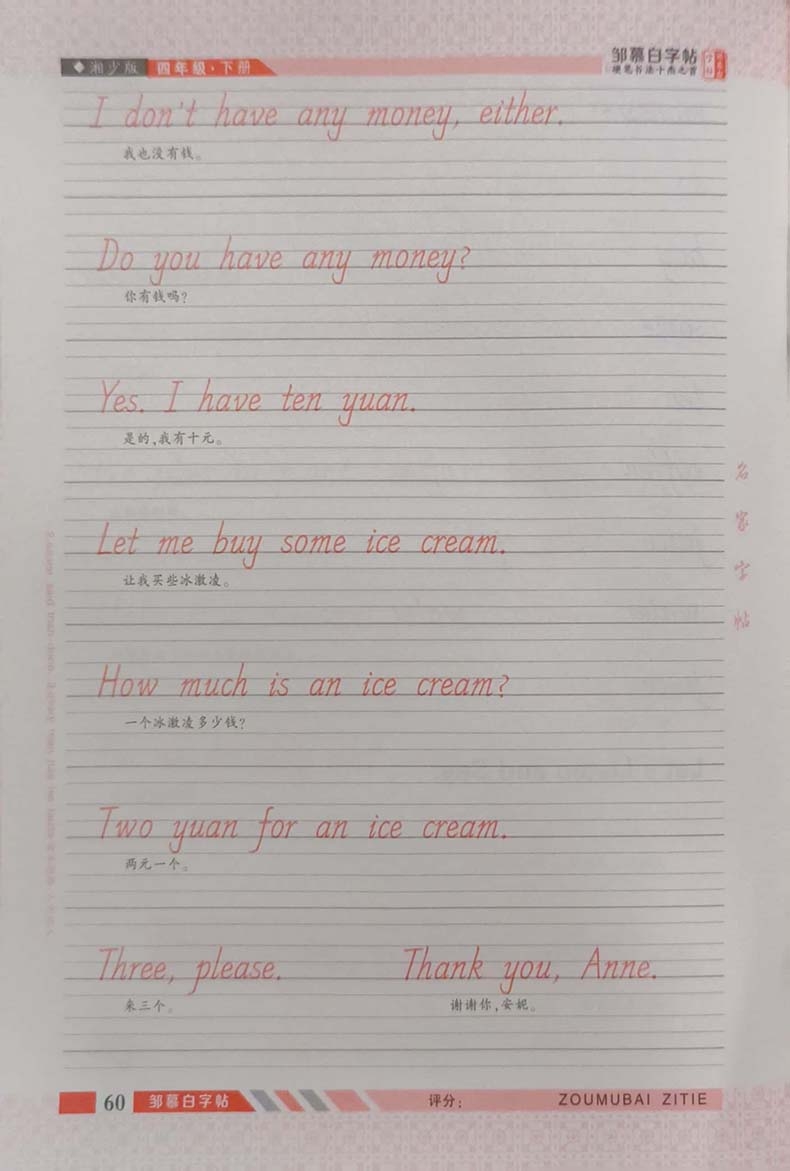 ◆湘少版 四年级·下册
邹慕白字帖
硬笔书法十杰之首
I don't have any money, either.
我也没有钱。
Do you have any money?
你有钱吗?
Yes. I have ten yuan.
是的,我有十元。
Let me buy some ice cream.
让我买些冰激凌。
How much is an ice cream?
一个冰激凌多少钱?
Two yuan for an ice cream.
两元一个。
Three, please. Thank you, Anne.
来三个。 谢谢你,安妮。
名家字帖
60 邹慕白字帖 评分: ZOUMUBAI ZITIE